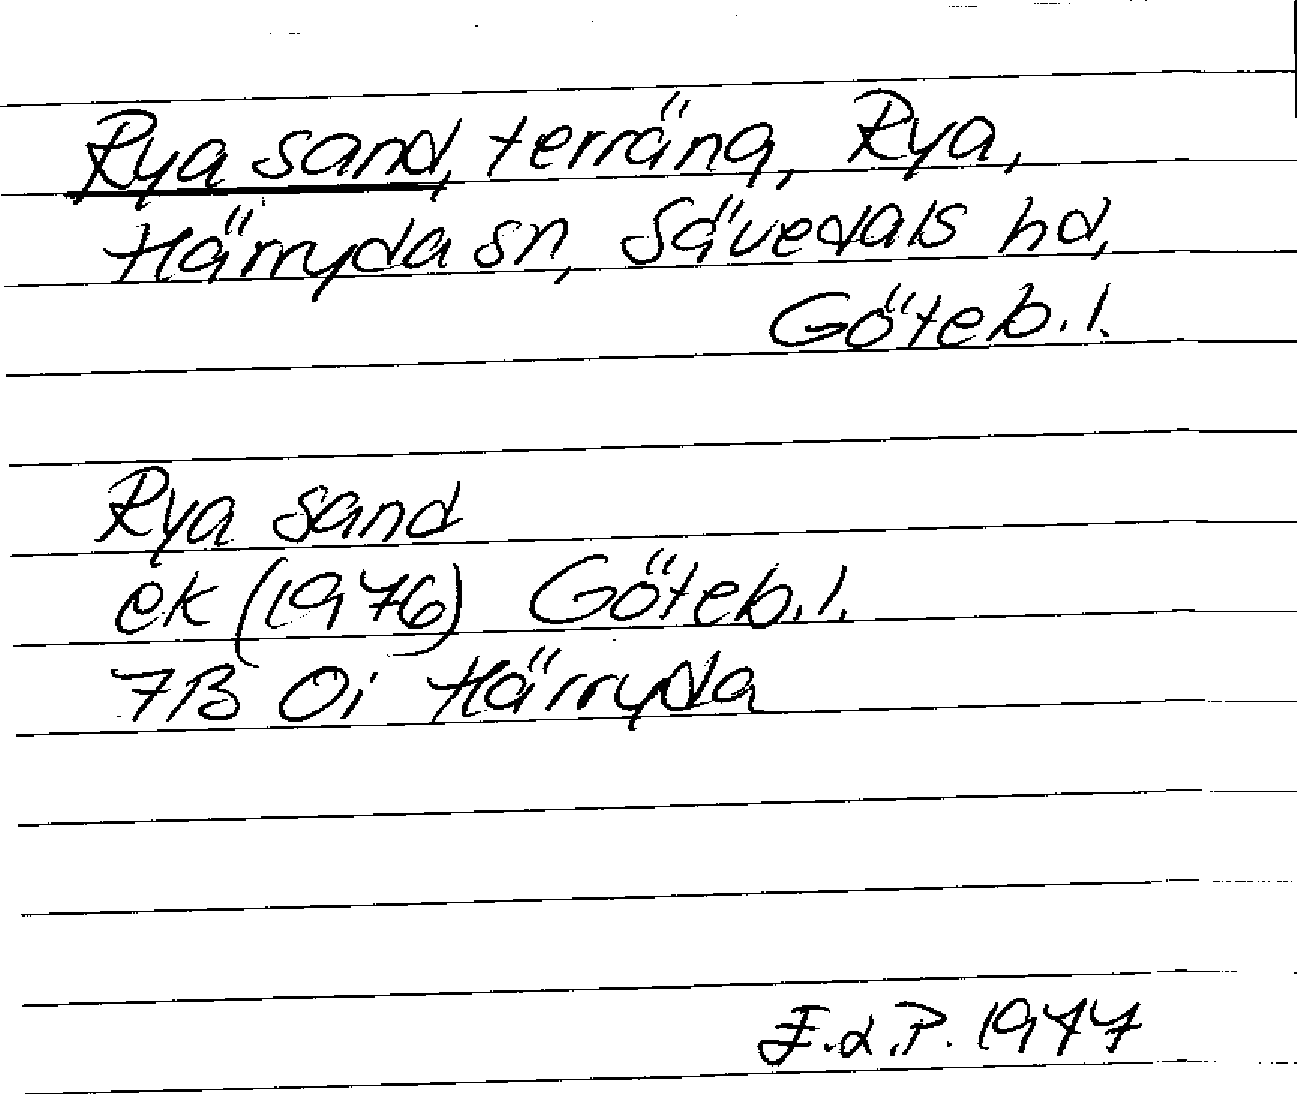 Rya sand, terräng, Rya,
Härryda sn, Sävedals hd,
Göteb. l.
Rya sand
ek (1976) Göteb. l.
7B 0i Härryda
F.d.P. 1977